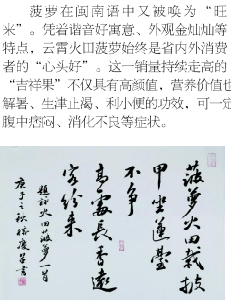 菠萝在闽南语中又被唤为“旺
米”。凭着谐音好寓意、外观金灿灿等
特点，云霄火田菠萝始终是省内外消费
者的“心头好”。这一销量持续走高的
“吉祥果”不仅具有高颜值，营养价值也
解署、生津止渴、利小便的功效，可一定
腹中痞闷、消化不良等症状。
菠萝火田栽披
甲坐莲台
不争
高处长香远
客纷来
题诗火田菠萝一首